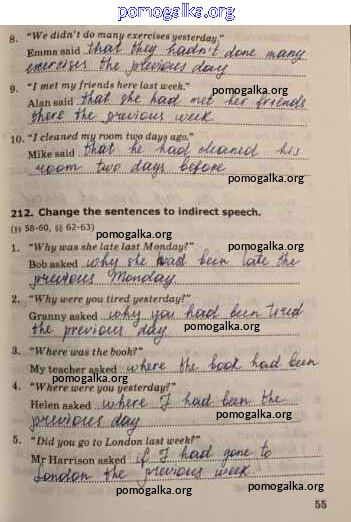 pomogalka.org
8. "We didn't do many exercises yesterday."
Emma said that they hadn't done many
exercises the previous day
pomogalka.org
9. "I met my friends here last week."
Alan said that she had met her friends
there the previous week
pomogalka.org
10. "I cleaned my room two days ago."
Mike said that he had cleaned his
room two days before
pomogalka.org
212. Change the sentences to indirect speech.
(§§ 58-60, §§ 62-63)
pomogalka.org
1. "Why was she late last Monday?"
Bob asked why she had been late the
previous Monday
pomogalka.org
2. "Why were you tired yesterday?"
Granny asked why you had been tired
the previous day
pomogalka.org
3. "Where was the book?"
My teacher asked where the book had been
pomogalka.org
4. "Where were you yesterday?"
Helen asked where I had been the
previous day
pomogalka.org
5. "Did you go to London last week?"
Mr Harrison asked if I had gone to
London the previous week
pomogalka.org
pomogalka.org
55